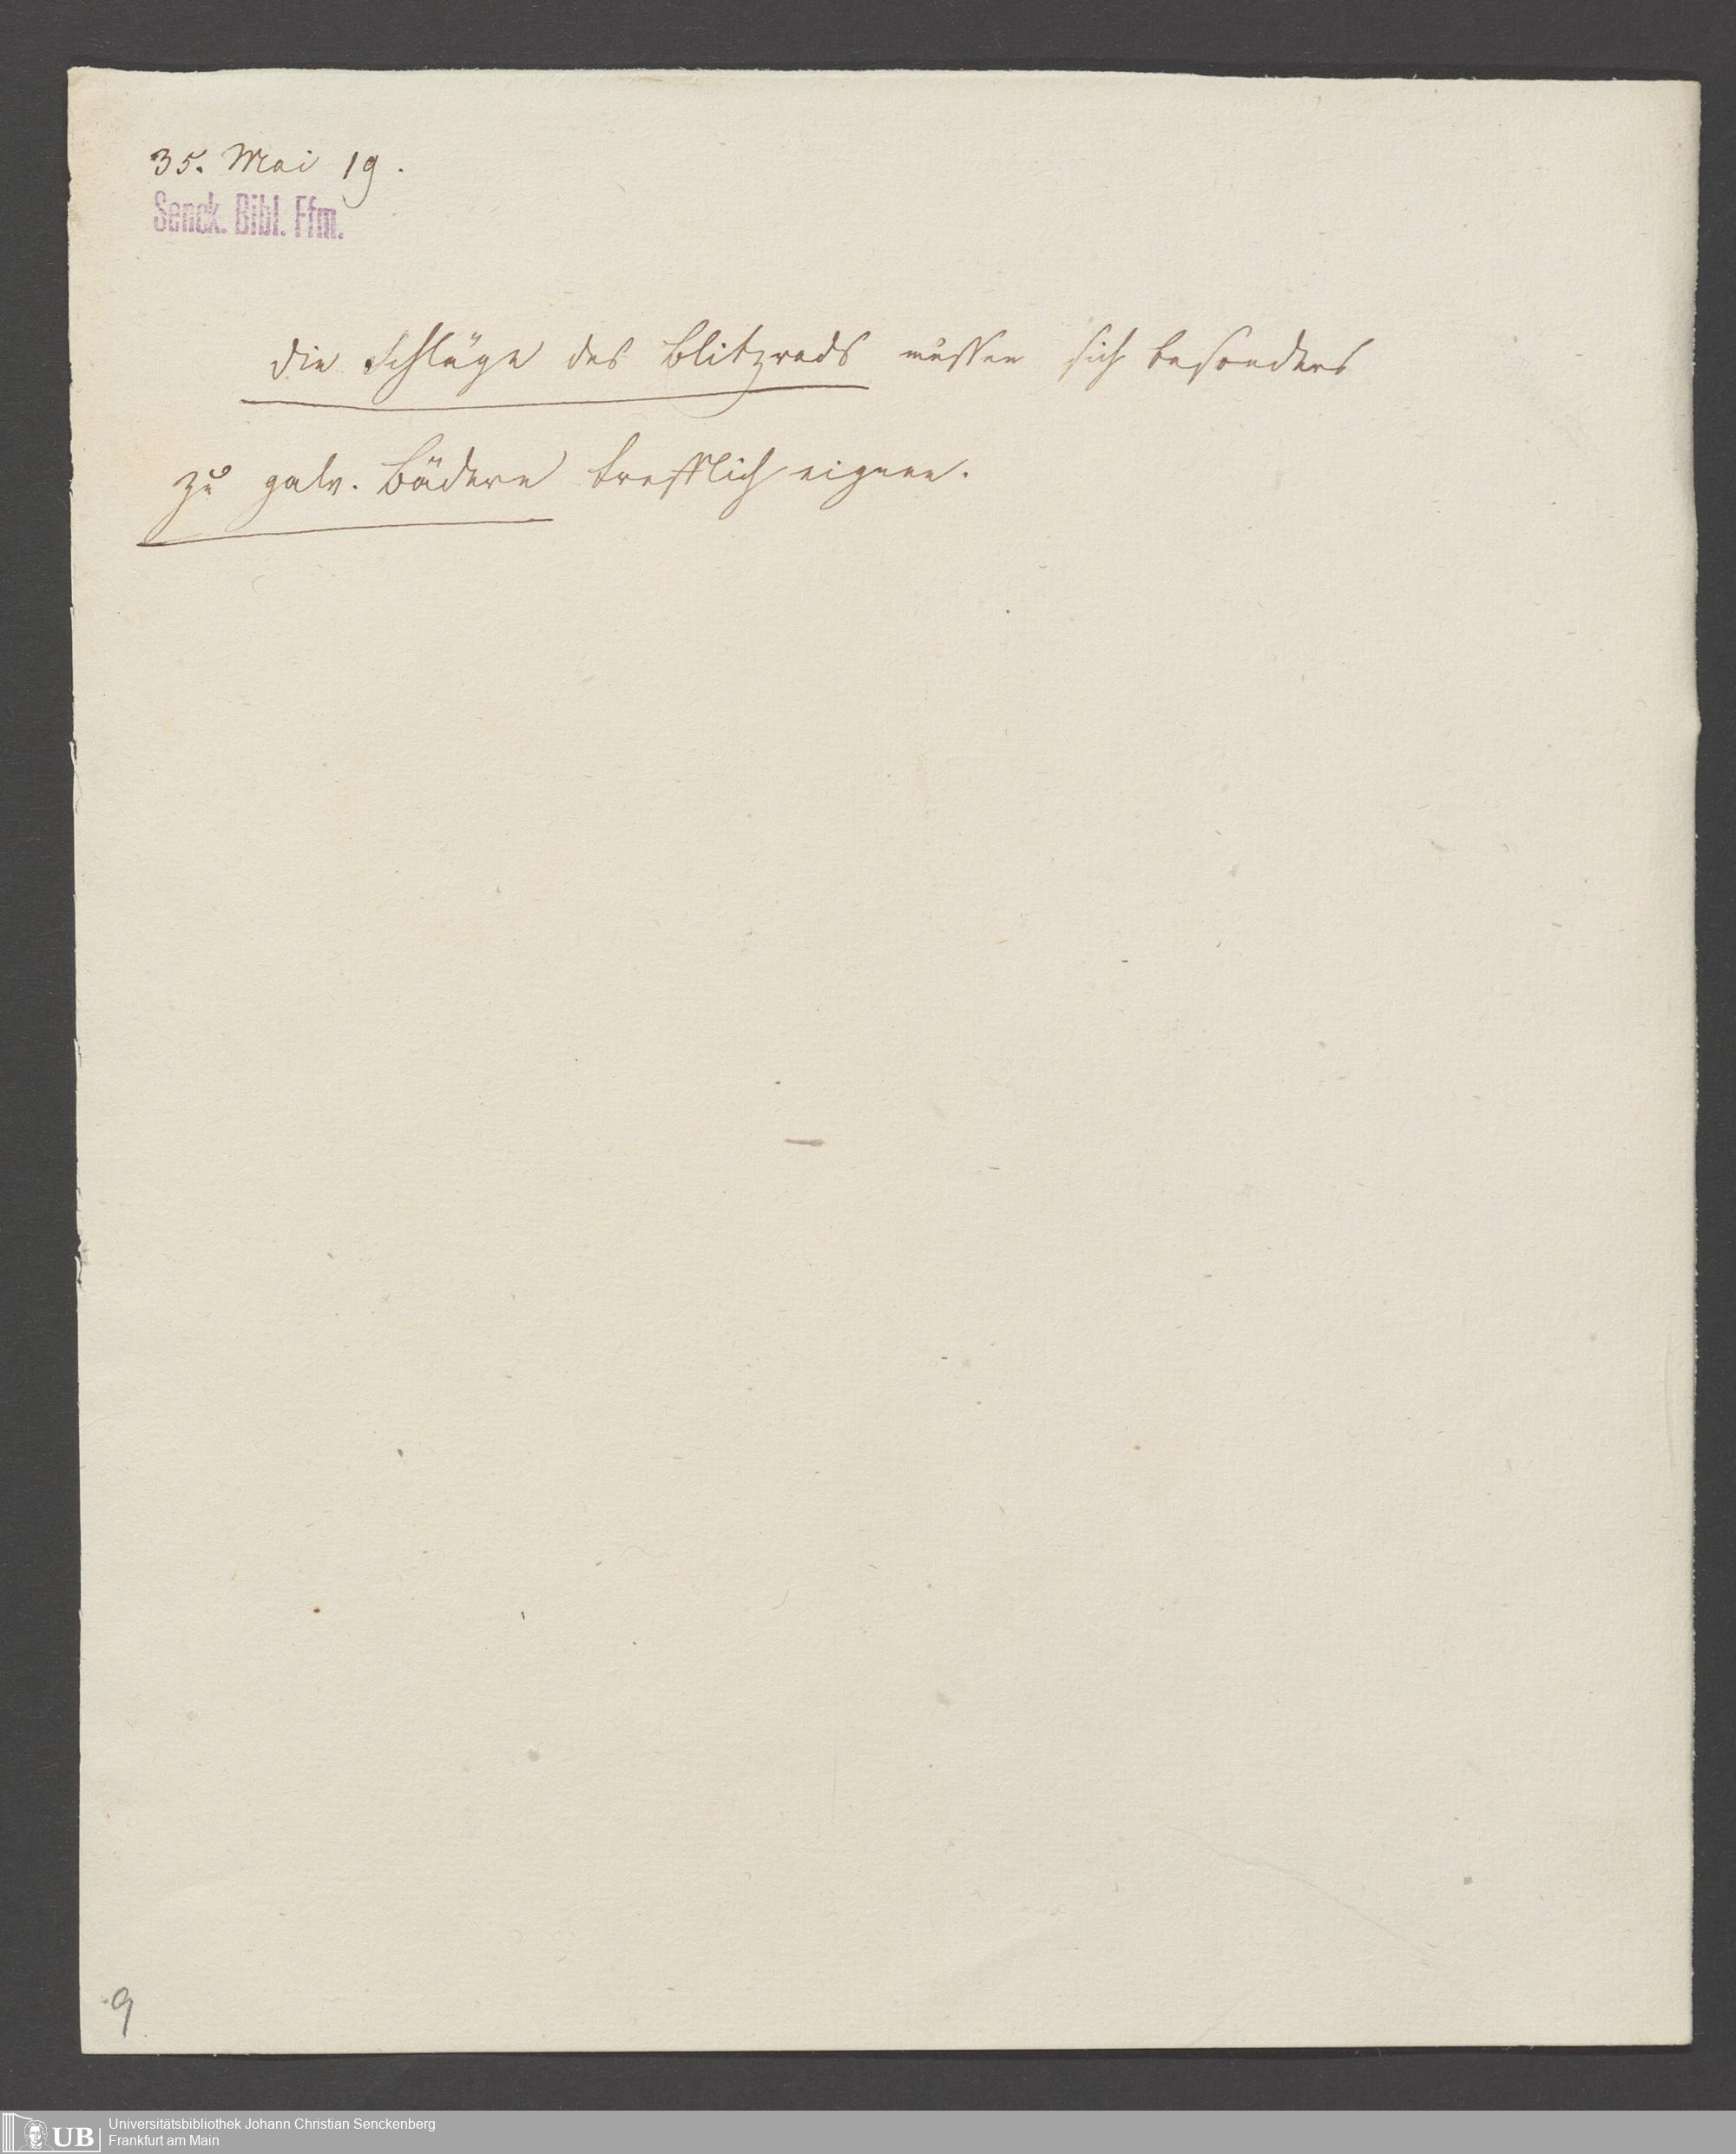 35. Mai 19.
Senck. Bibl. Ffm.
die Schläge des Blitzrads müssen sich besonders
zu galv. Bädern trefflich eignen.
9
UB
Universitätsbibliothek Johann Christian Senckenberg
Frankfurt am Main